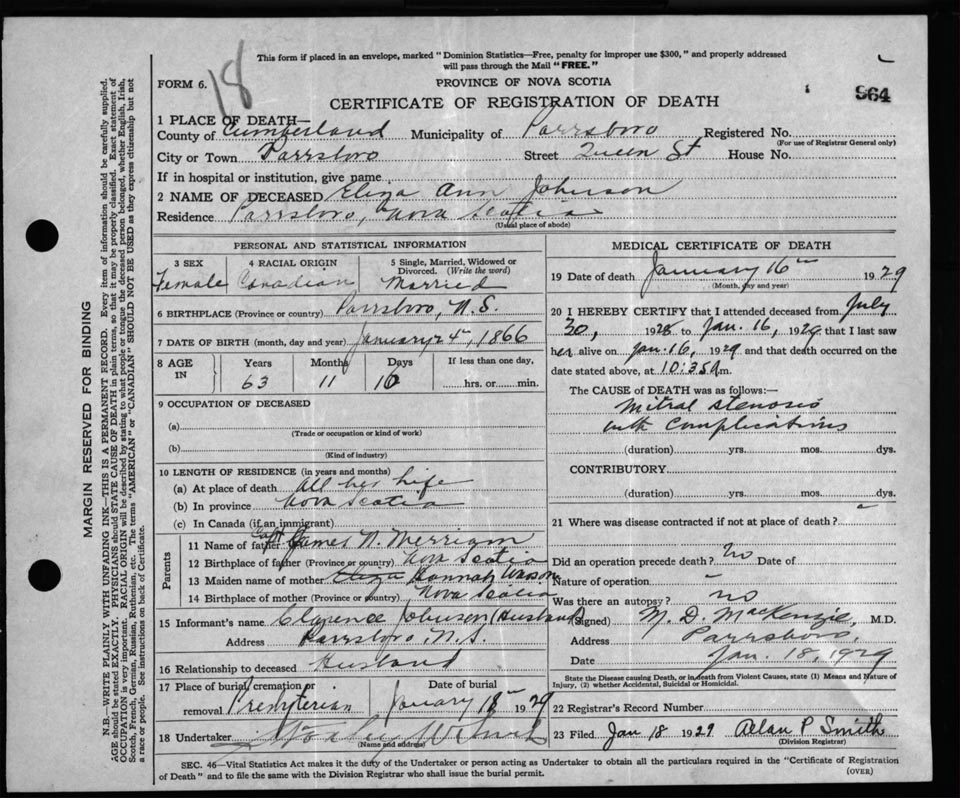 This form if placed in an envelope, marked "Dominion Statistics—Free, penalty for improper use $300," and properly addressed
will pass through the Mail "FREE."
18
FORM 6.
PROVINCE OF NOVA SCOTIA
964
CERTIFICATE OF REGISTRATION OF DEATH
1 PLACE OF DEATH—
County of Cumberland Municipality of Parrsboro Registered No.
(For use of Registrar General only)
City or Town Parrsboro Street Queen St House No.
If in hospital or institution, give name
2 NAME OF DECEASED Eliza Ann Johnson
Residence Parrsboro, Nova Scotia
(Usual place of abode)
PERSONAL AND STATISTICAL INFORMATION
3 SEX 4 RACIAL ORIGIN 5 Single, Married, Widowed or Divorced. (Write the word)
Female Canadian Married
6 BIRTHPLACE (Province or country) Parrsboro, N.S.
7 DATE OF BIRTH (month, day and year) January 24, 1866
8 AGE IN Years Months Days If less than one day,
63 11 16 hrs. or min.
9 OCCUPATION OF DECEASED
(a)
(Trade or occupation or kind of work)
(b)
(Kind of industry)
10 LENGTH OF RESIDENCE (in years and months)
(a) At place of death All her life
(b) In province Nova Scotia
(c) In Canada (if an immigrant)
Parents
11 Name of father Capt James N. Merriam
12 Birthplace of father (Province or country) Nova Scotia
13 Maiden name of mother Hannah
14 Birthplace of mother (Province or country) Nova Scotia
15 Informant's name Clarence Johnson (Husband)
Address Parrsboro N.S.
16 Relationship to deceased Husband
17 Place of burial, cremation or removal Presbyterian Date of burial January 18 1929
18 Undertaker
(Name and address)
MEDICAL CERTIFICATE OF DEATH
19 Date of death January 16th 1929
(Month, day and year)
20 I HEREBY CERTIFY that I attended deceased from July
30, 1928 to Jan. 16, 1929 that I last saw
her alive on Jan. 16, 1929 and that death occurred on
date stated above, at 10:35 a.m.
The CAUSE of DEATH was as follows:—
Mitral stenosis
with complications
(duration) yrs. mos. dys.
CONTRIBUTORY
(duration) yrs. mos. dys.
21 Where was disease contracted if not at place of death?
Did an operation precede death? No Date of
Nature of operation
Was there an autopsy? no
(Signed) M. D. MacKenzie, M.D.
Address Parrsboro.
Date Jan. 18, 1929
State the Disease causing Death, or in death from Violent Causes, state (1) Means and Nature of
Injury, (2) whether Accidental, Suicidal or Homicidal.
22 Registrar's Record Number
23 Filed Jan 18 1929 Allan P Smith
(Division Registrar)
SEC. 46—Vital Statistics Act makes it the duty of the Undertaker or person acting as Undertaker to obtain all the particulars required in the "Certificate of Registration
of Death" and to file the same with the Division Registrar who shall issue the burial permit.
(OVER)
MARGIN RESERVED FOR BINDING
N.B.—WRITE PLAINLY WITH UNFADING INK—THIS IS A PERMANENT RECORD. Every item of information should be carefully supplied.
AGE should be stated EXACTLY. PHYSICIANS should STATE CAUSE OF DEATH in plain terms, so that it may be properly classified. Exact statement of
OCCUPATION is very important. RACIAL ORIGIN will be described by stating to what people or tongue the deceased person belonged, whether English, Irish,
Scotch, French, German, Russian, Ruthenian, etc. The terms "AMERICAN" or "CANADIAN" SHOULD NOT BE USED as they express citizenship but not
a race or people. See instructions on back of Certificate.